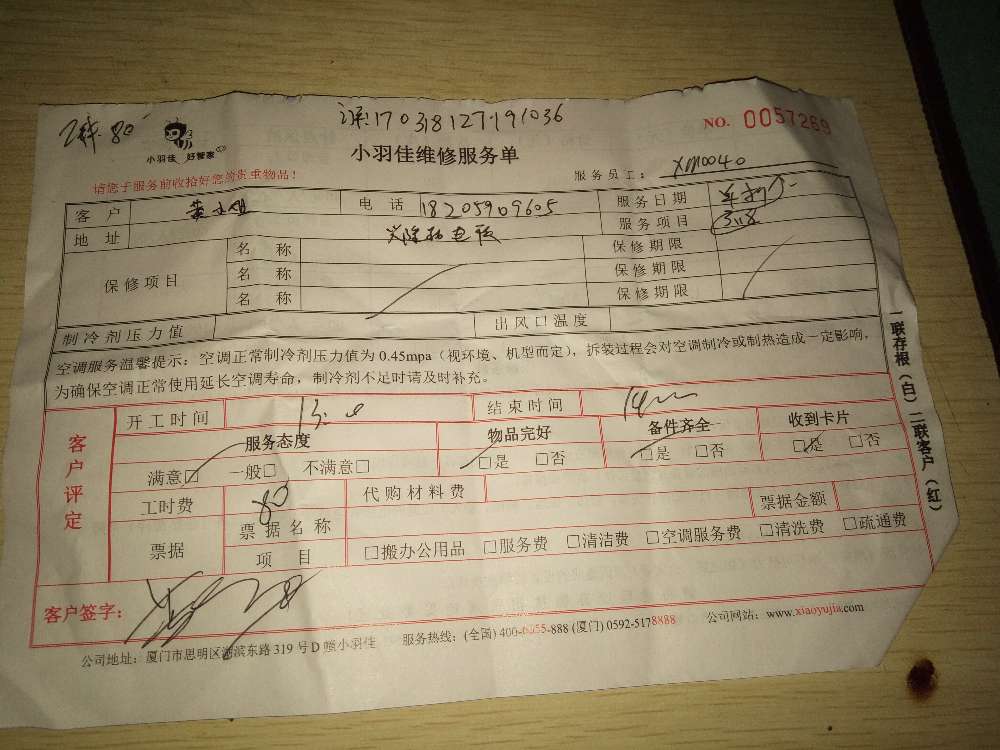 170318127191036
NO. 0057269
小羽佳 好管家
小羽佳维修服务单
请您于服务前收拾好您的贵重物品！
服务员工： XM0040
客 户 电 话 18205909605 服务日期
地 址 服务项目 3.18
保修项目 名 称 保修期限
名 称 保修期限
名 称 保修期限
制冷剂压力值 出风口温度
空调服务温馨提示：空调正常制冷剂压力值为 0.45mpa（视环境、机型而定），拆装过程会对空调制冷或制热造成一定影响，
为确保空调正常使用延长空调寿命，制冷剂不足时请及时补充。
客户评定
开工时间 结束时间
服务态度 物品完好 备件齐全 收到卡片
满意□ 一般□ 不满意□ □是 □否 □是 □否 □是 □否
工时费 80 代购材料费
票据 票据名称 票据金额
项 目 □搬办公用品 □服务费 □清洁费 □空调服务费 □清洗费 □疏通费
客户签字：
公司地址：厦门市思明区湖滨东路 319 号 D 幢小羽佳 服务热线：(全国) 400-6055-888 (厦门) 0592-5178888 公司网站：www.xiaoyujia.com
一联存根（白）二联客户（红）